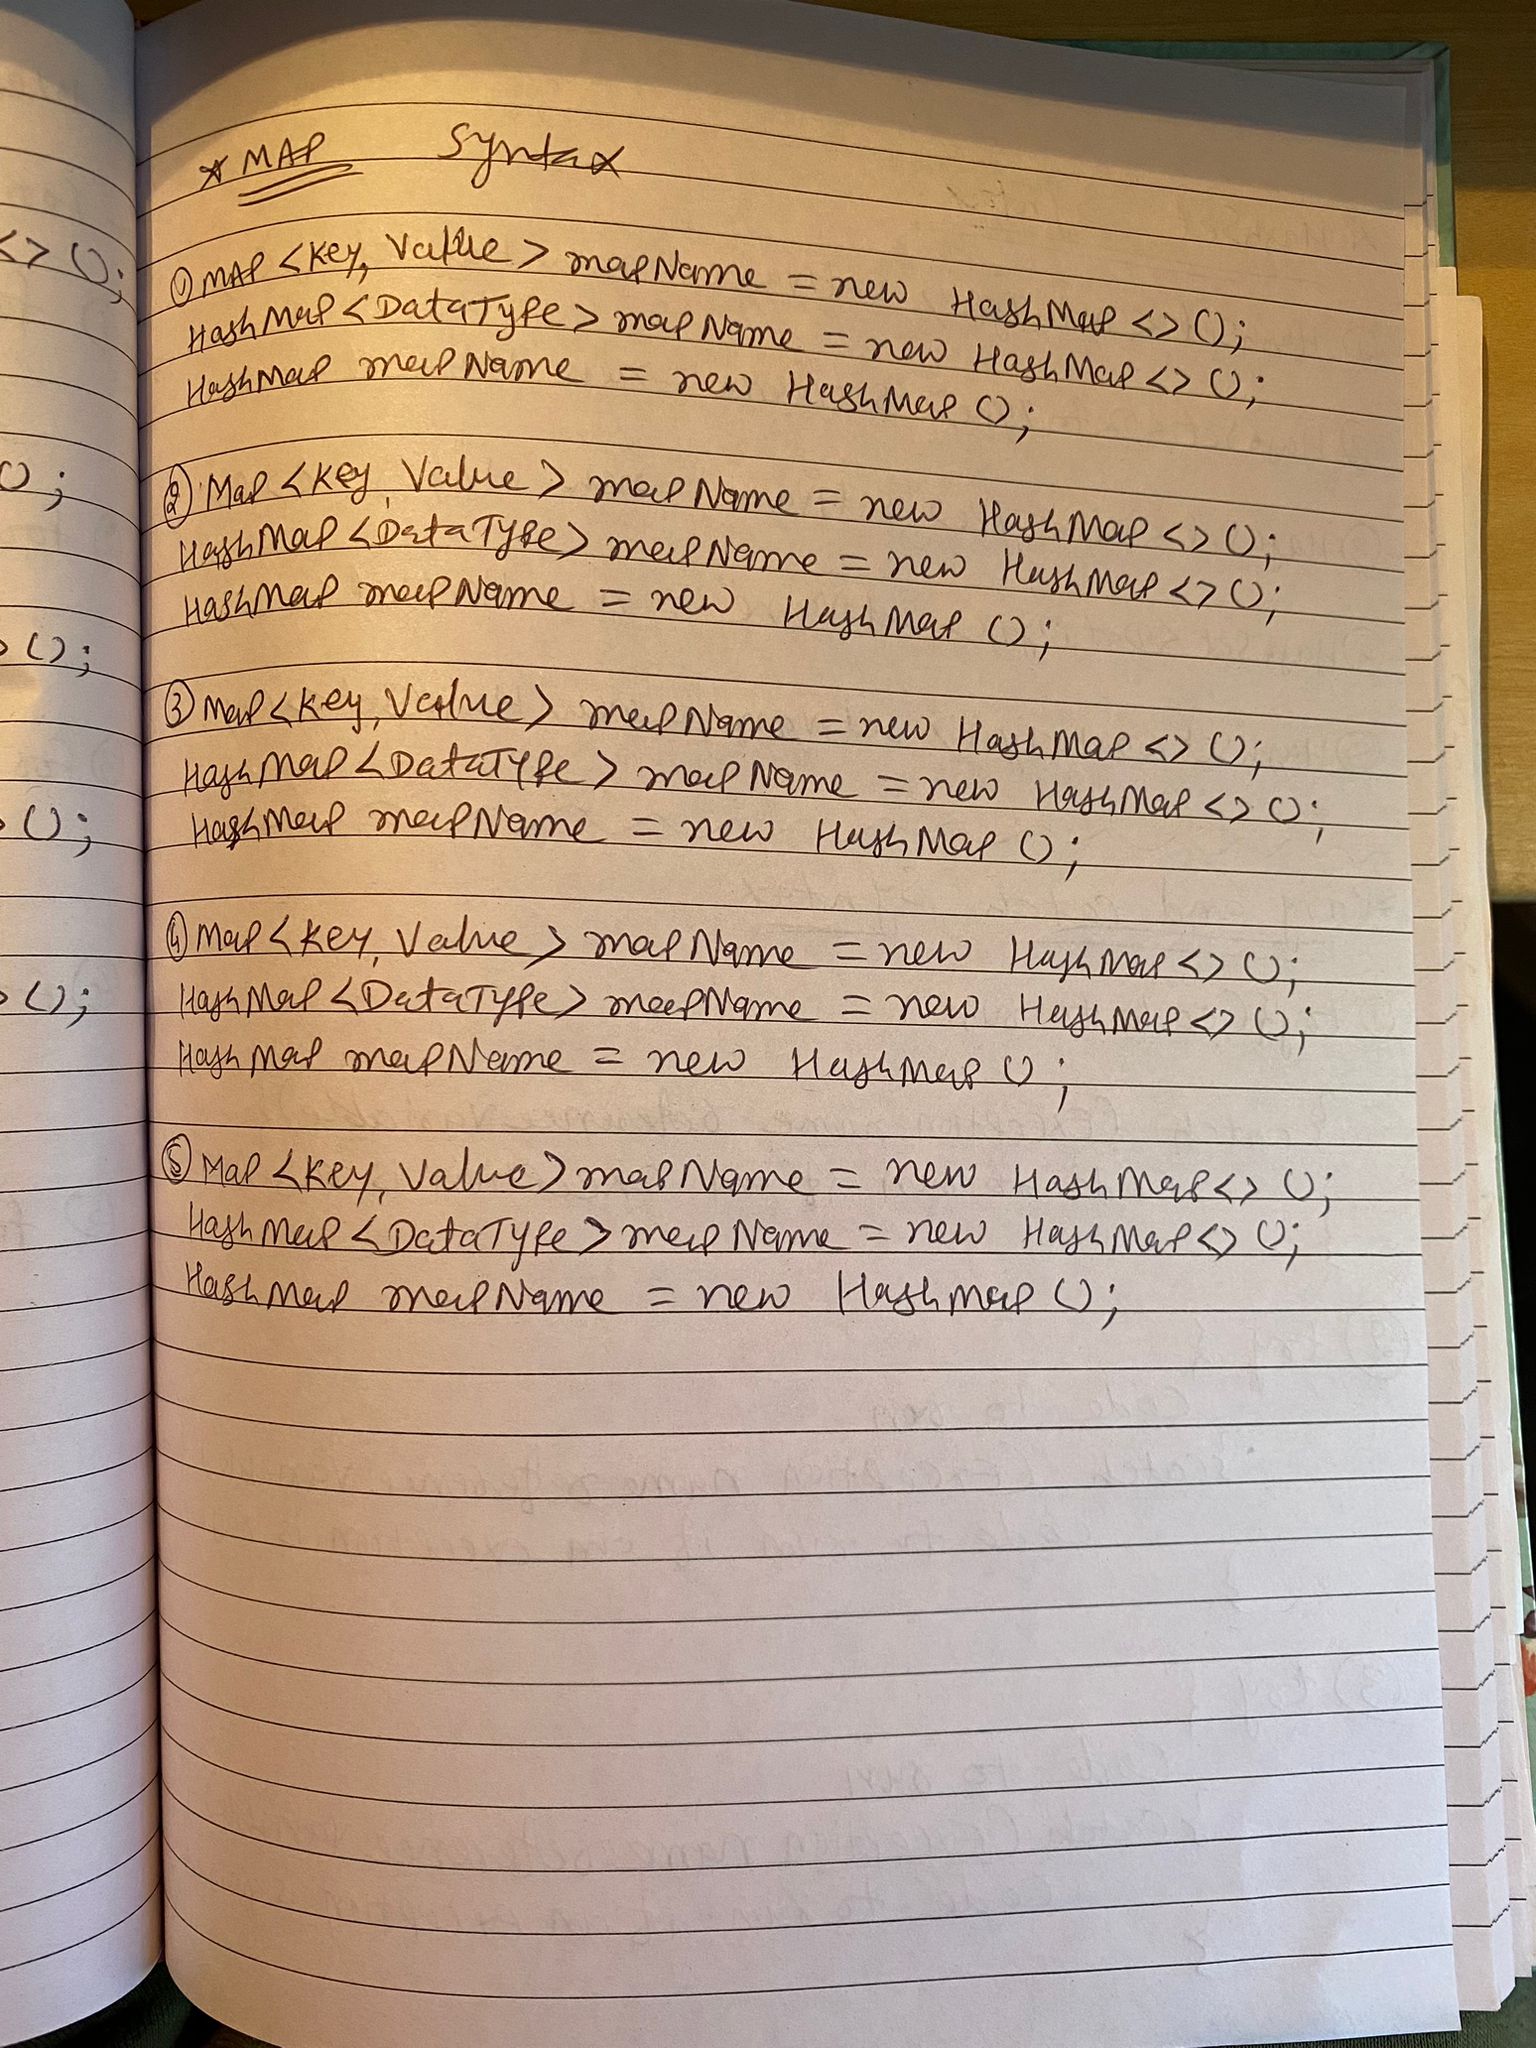 * MAP Syntax
① MAP <Key, Value> mapName = new HashMap <> ();
HashMap <DataType> mapName = new HashMap <> ();
HashMap mapName = new HashMap ();
② Map <Key, Value> mapName = new HashMap <> ();
HashMap <DataType> mapName = new HashMap <> ();
HashMap mapName = new HashMap ();
③ Map <Key, Value> mapName = new HashMap <> ();
HashMap <DataType> mapName = new HashMap <> ();
HashMap mapName = new HashMap ();
④ Map <Key, Value> mapName = new HashMap <> ();
HashMap <DataType> mapName = new HashMap <> ();
HashMap mapName = new HashMap ();
⑤ Map <Key, Value> mapName = new HashMap <> ();
HashMap <DataType> mapName = new HashMap <> ();
HashMap mapName = new HashMap ();
<> ();
();
> ();
> ();
> ();